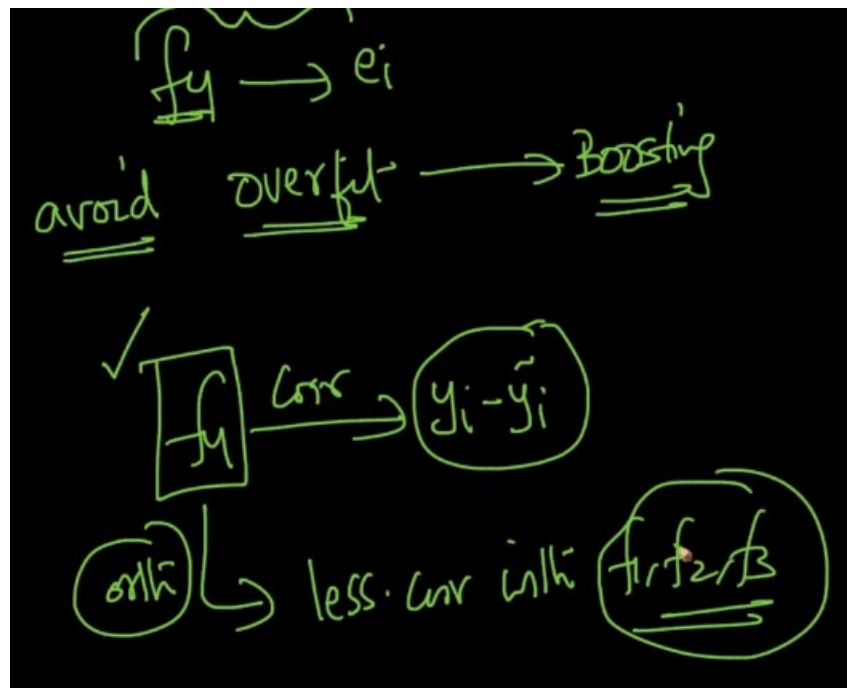 f4 → ei
avoid overfit → Boosting
✓ f4 corr → yi - ỹi
orth ↳ less. corr with f1, f2, f3